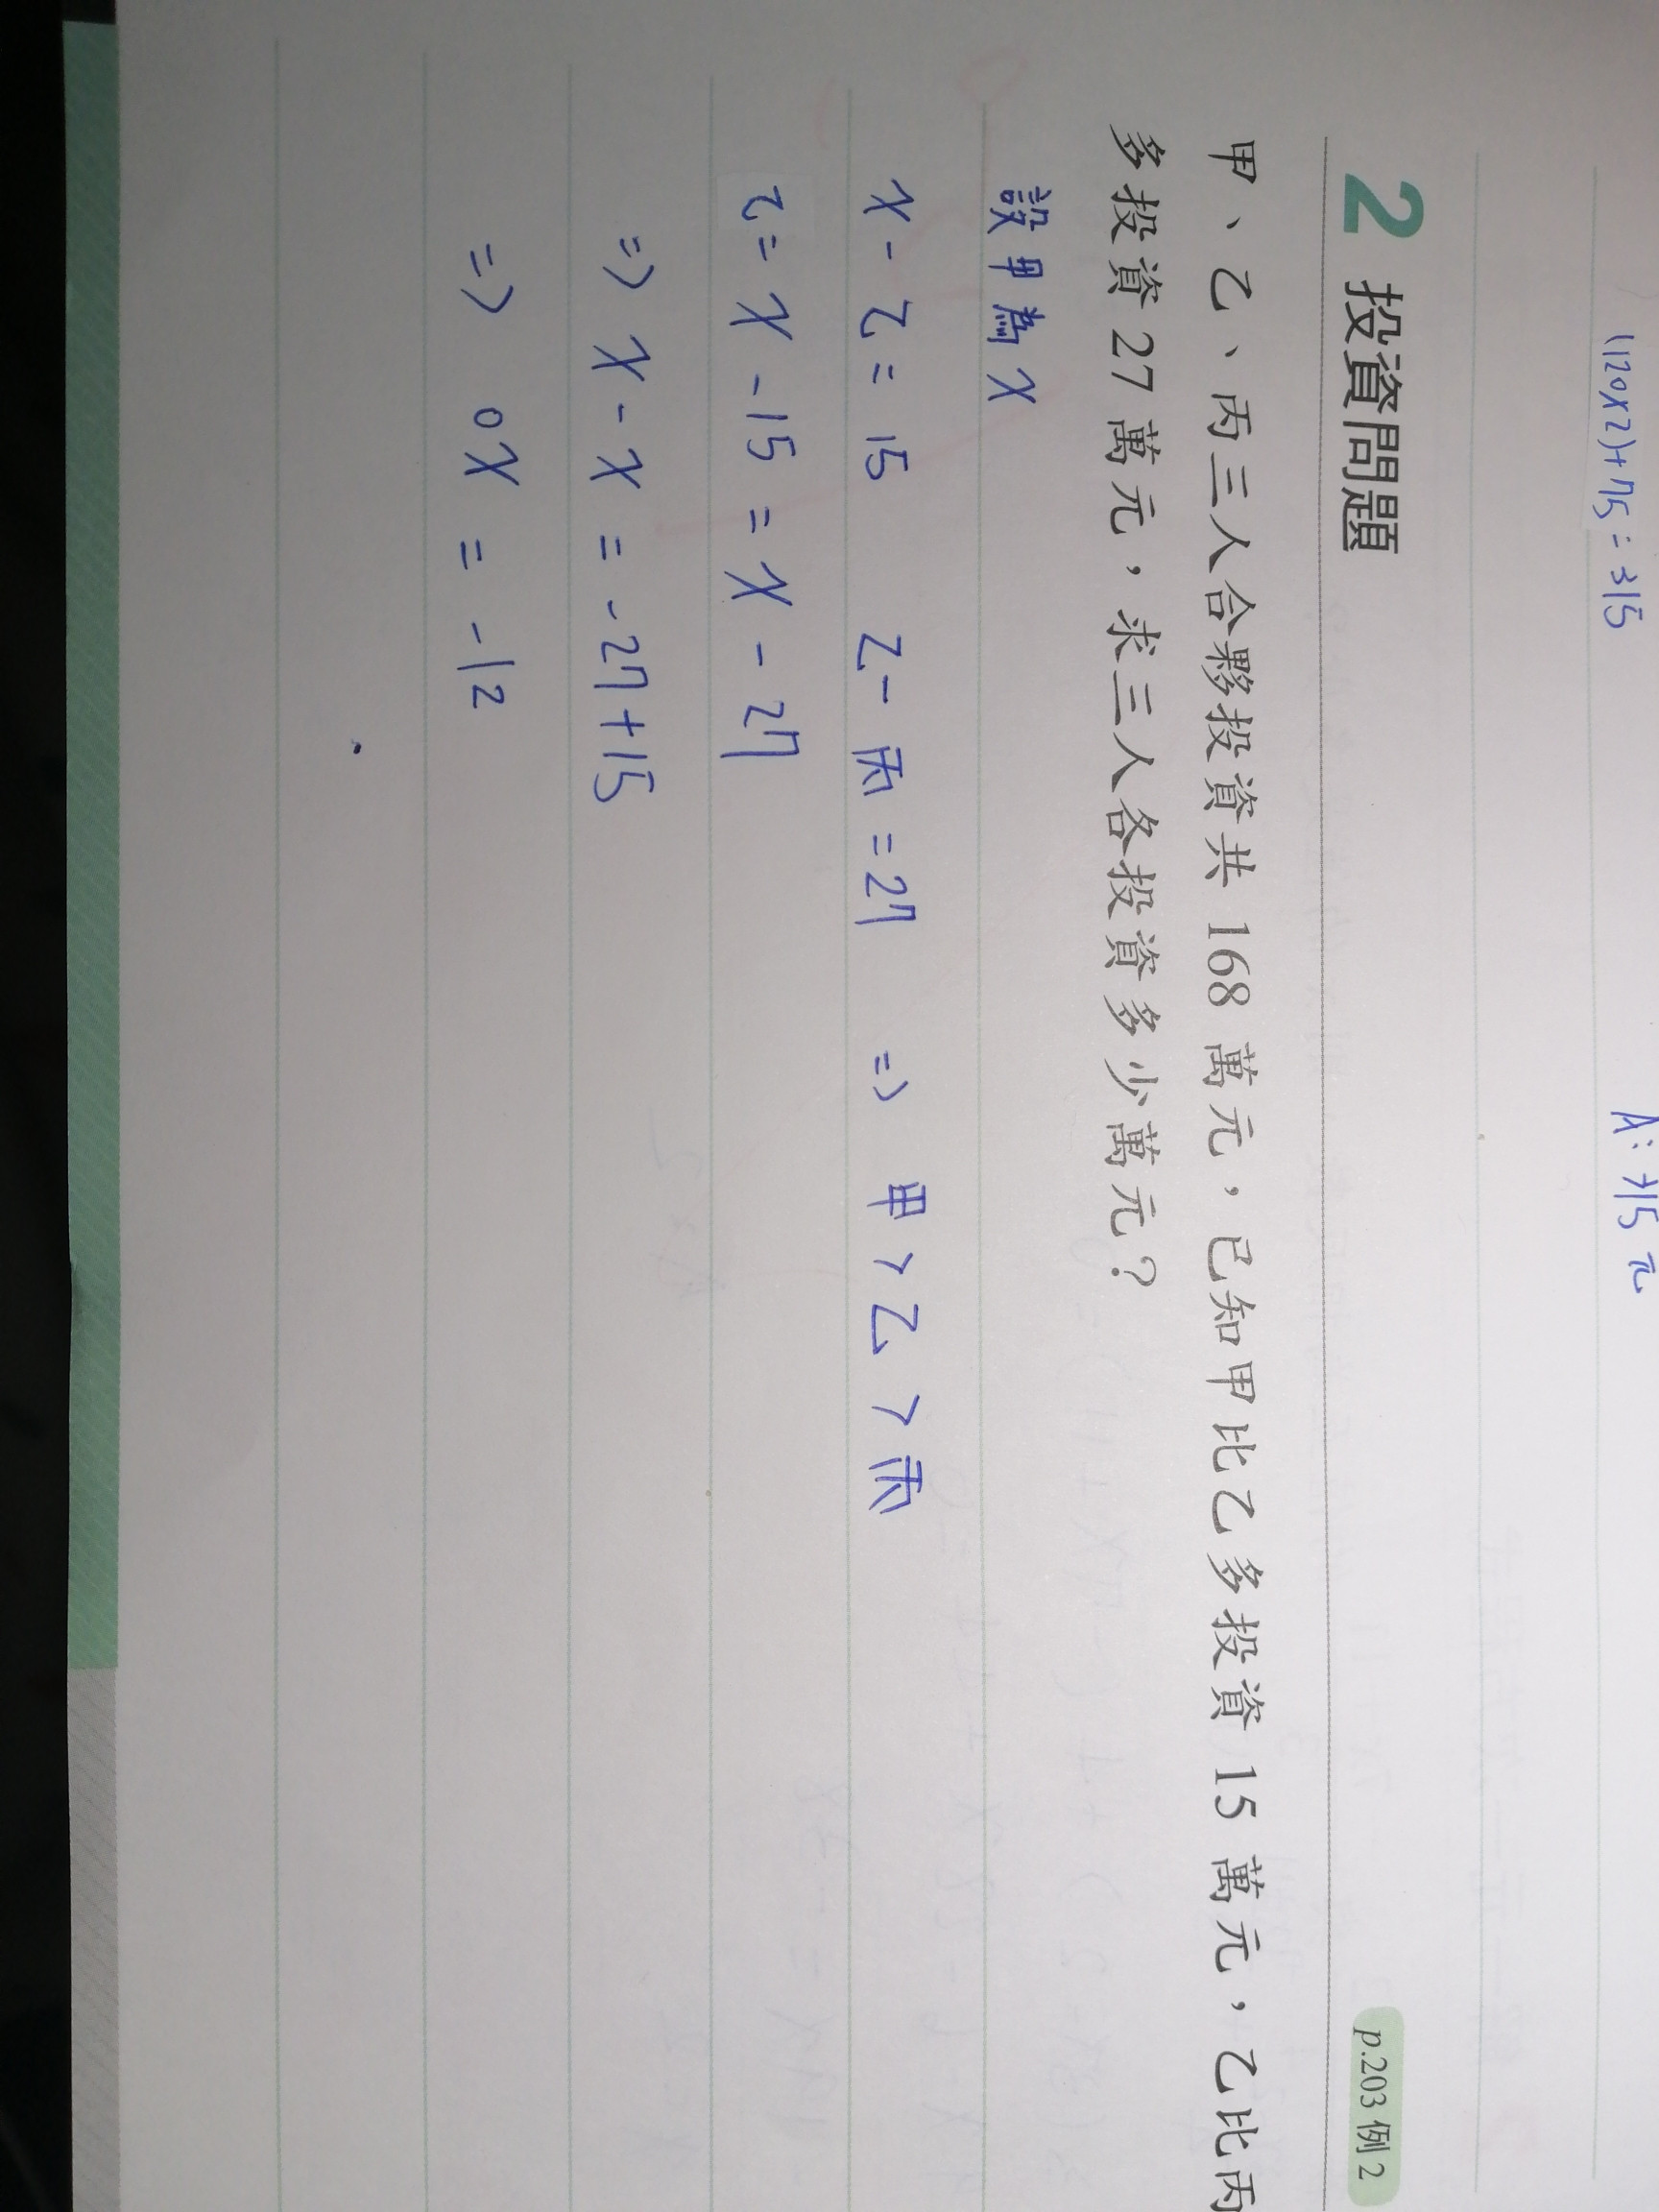 (120×2)+75=315
A:315元
2 投資問題 p.203 例2
甲、乙、丙三人合夥投資共 168 萬元，已知甲比乙多投資 15 萬元，乙比丙
多投資 27 萬元，求三人各投資多少萬元？
設甲為x
x-乙=15 乙-丙=27 => 甲>乙>丙
乙=x-15=x-27
=> x-x=-27+15
=> 0x=-12